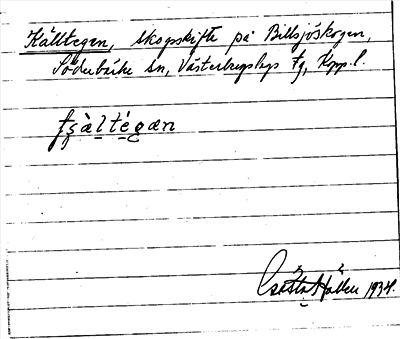 Källtegen, skogsskifte på Billsjöskogen,
Söderbärke sn, Västerbergslags fg, Kopp. l.
tʂàltégæn
Hällen 1934.